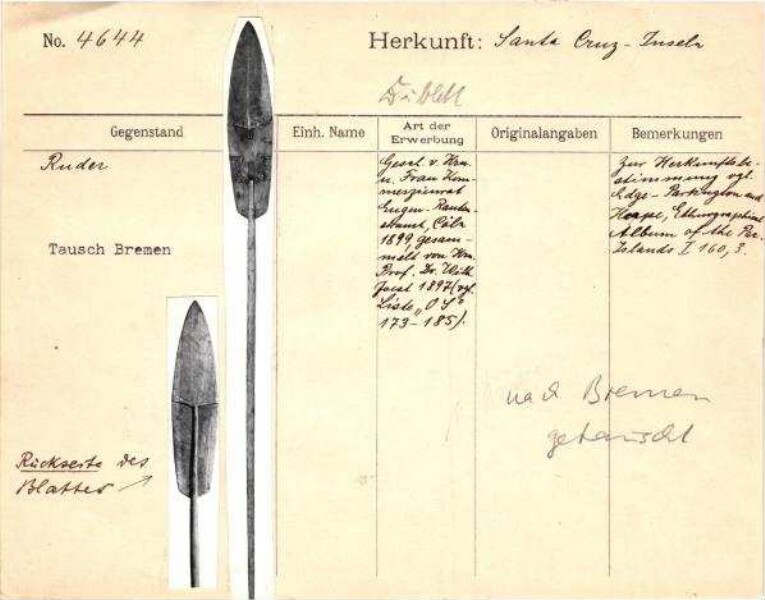 No. 4644
Herkunft: Santa Cruz-Inseln
Dublett
Gegenstand
Einh. Name
Art der
Erwerbung
Originalangaben
Bemerkungen
Ruder
Tausch Bremen
Rückseite des
Blattes
Gesch. v. Hrn.
u. Frau Kom-
merzienrat
Eugen Rauten-
strauch, Cöln
1899, gesam-
melt von Hrn.
Prof. Dr. Wilh.
Joest 1897 (vgl.
Liste „OS"
173-185).
nach Bremen
getauscht
Zur Herkunftsbe-
stimmung vgl.
Edge-Partington and
Heape, Ethnographical
Album of the Pac.
Islands I 160, 3.